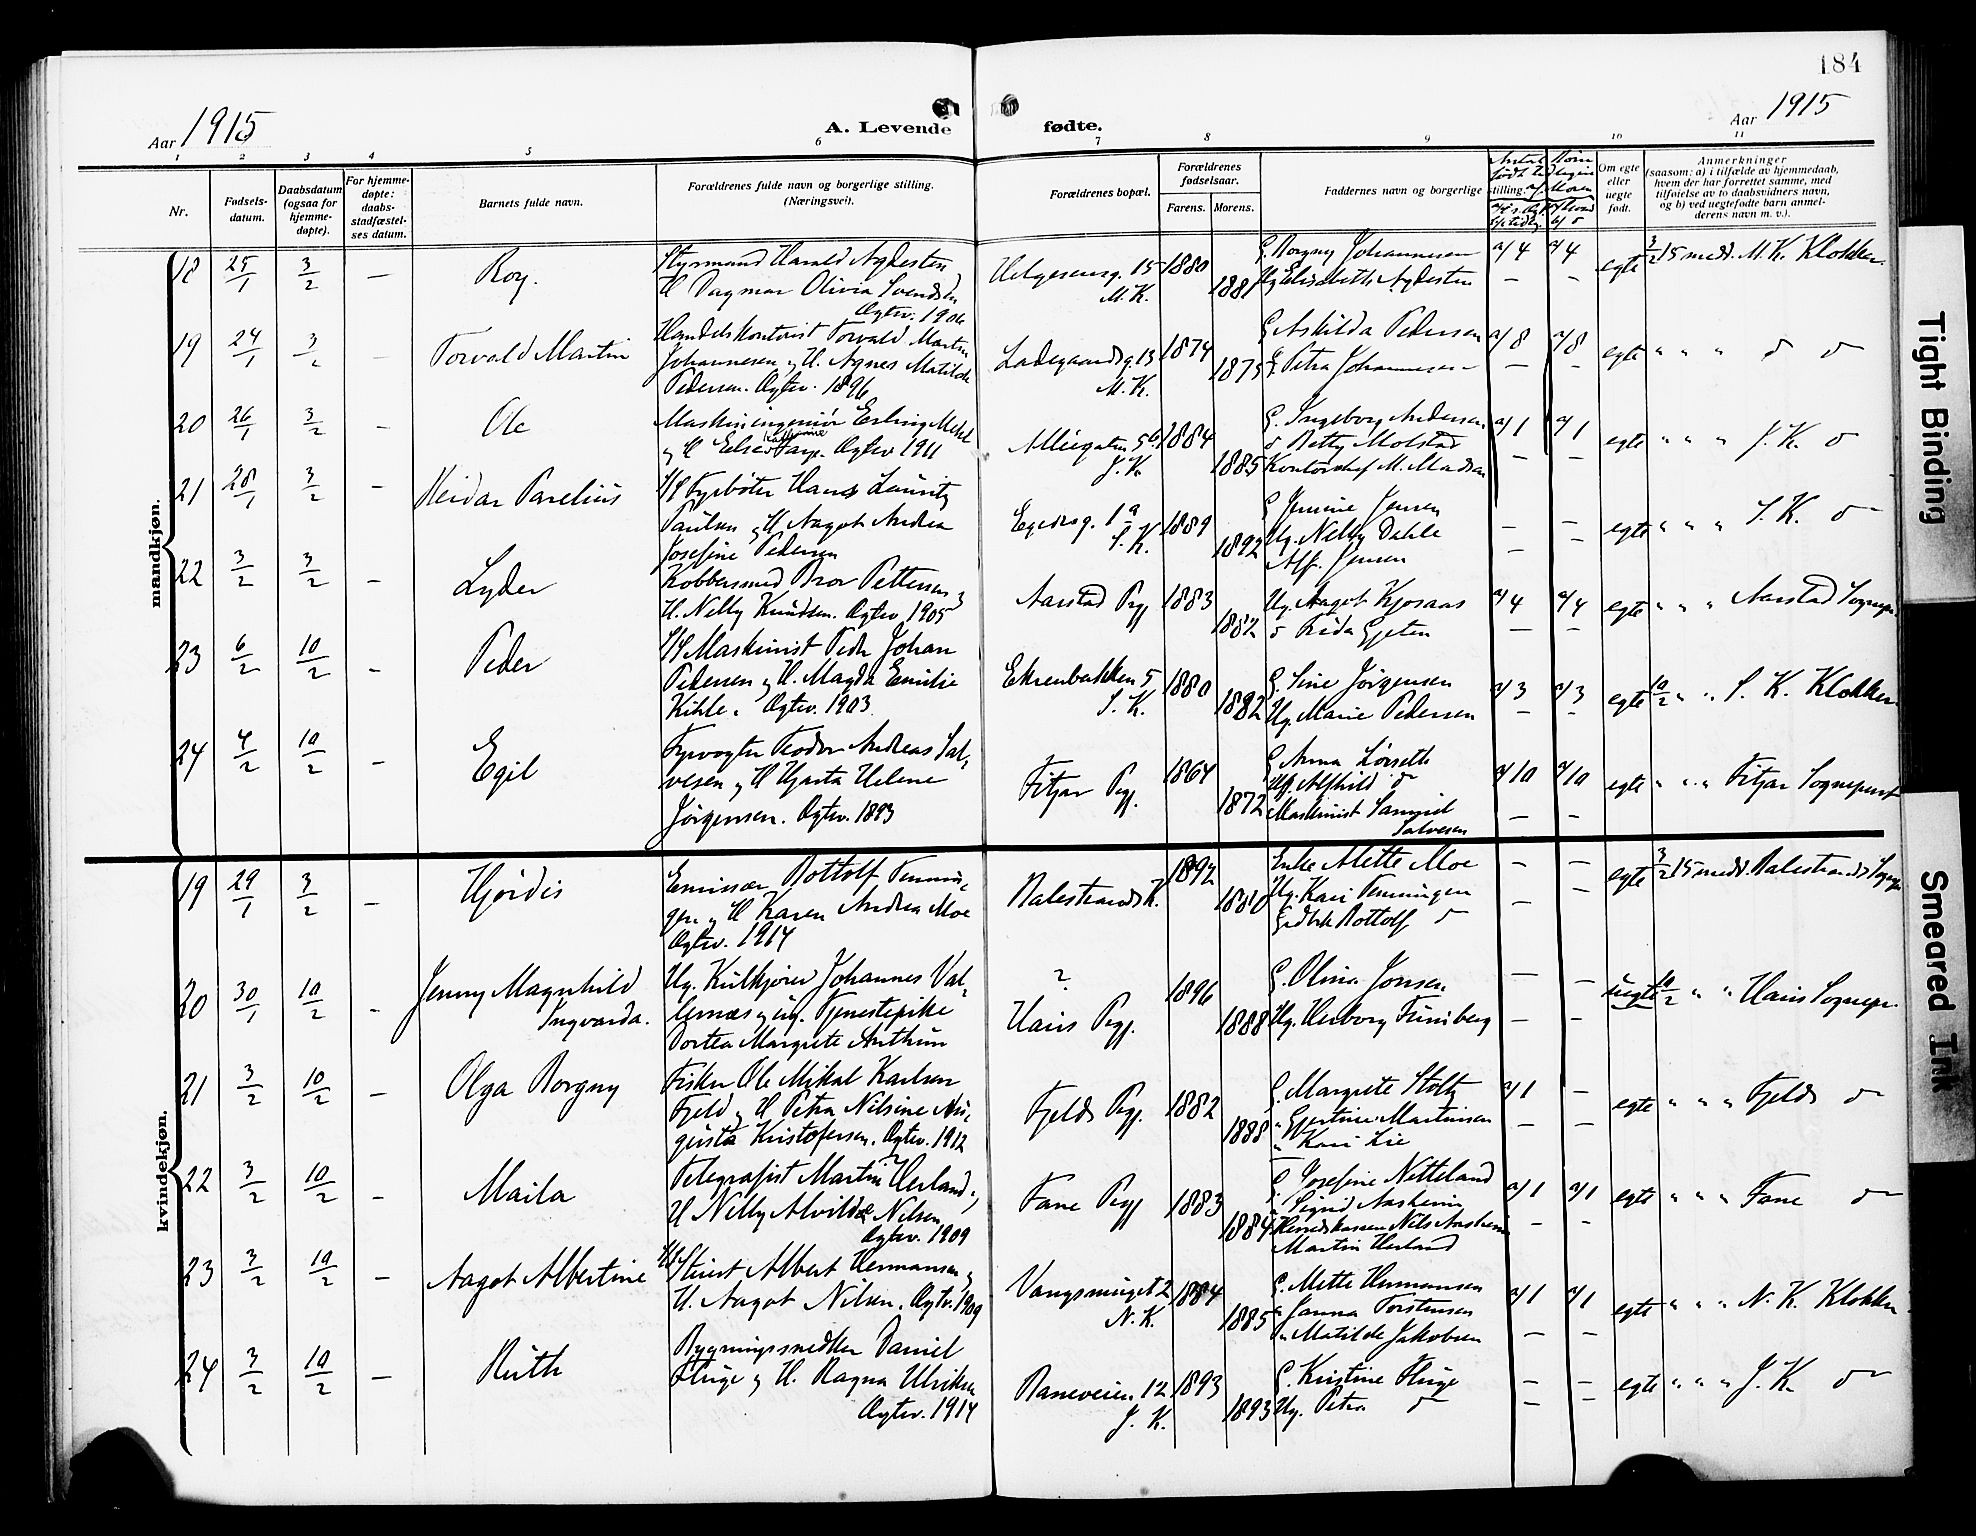 184
Aar 1915
A. Levende fødte.
Aar 1915
1 2 3 4 5 6 7 8 9 10 11
Nr.
Fødsels-
datum.
Daabsdatum
(ogsaa for
hjemme-
døpte).
For hjemme-
døpte:
daabs-
stadfæstel-
ses datum.
Barnets fulde navn.
Forældrenes fulde navn og borgerlige stilling.
(Næringsvei).
Forældrenes bopæl.
Forældrenes
fødselsaar.
Farens. Morens.
Faddernes navn og borgerlige stilling.
Om egte
eller
uegte
født.
Anmerkninger
(saasom: a) i tilfælde av hjemmedaab,
hvem der har forrettet samme, med
tilføielse av to daabsvidners navn,
og b) ved uegtefødte barn anmel-
derens navn m. v.).
mandkjøn.
18 25/1 3/2 — Roy.
Styrmand Harald Aydesten
H Dagmar Olivia Svendsen
Ogtev. 1906
Helgesensg. 15
M.K.
1880
1881
G. Borgny Johannesen
Ug Elisabeth Aydesten
a/4 a/4
— —
egte 3/2 15 medd. M.K. Klokker.
19 24/1 3/2 — Torvald Martin
Handelskontorist Torvald Martin
Johannesen, og H. Agnes Matilde
Pedersen. Ogtev. 1896
Ladegaardsg. 13
M.K.
1874
1875
G Askilda Pedersen
G. Petra Johannesen
a/8 a/8
— —
egte " " " d d
20 26/1 3/2 — Ole
Maskiningeniør Erling Mehl
og H Else Kathrine Faye. Ogtev 1911
Alliegaten 56
J.K.
1884
1885
G. Ingeborg Andersen
d Betty Molstad
Kontorchef M. Madsen
a/1 a/1
— —
egte " " " J.K. d
21 28/1 3/2 — Heidar Parelius
S/S Fyrbøter Hans Lauritz
Paulsen og H Aagot Andrea
Josefine Pedersen
Egedesg. 1a
S.K.
1889
1892
G Jenine Jensen
Ug. Nelly Dahle
Alf. Jensen
— —
— —
egte " " " S.K. d
22 3/2 3/2 — Lyder
Kobbersmed Bror Pettersen og
H. Nelly Knudsen. Ogtev. 1905
Aarstad Pgj
1883
1882
Ug. Aagot Kjosaas
d Frida Gjeten
a/4 a/4
— —
egte " " " Aarstad Sognepr.
23 6/2 10/2 — Peder
S/S Maskinist Peder Johan
Pedersen og H. Magda Emilie
Kihle. Ogtev. 1903.
Ekrenbakken 5
S.K.
1880
1882
G. Sine Jørgensen
Ug. Marie Pedersen
a/3 a/3
— —
egte 10/2 " " S. K. Klokker.
24 4/2 10/2 — Egil
Fyrvogter Teodor Andreas Sal-
vesen og H Hjarta Helene
Jørgensen. Ogtev. 1893
Fitjar Pgj.
1864
1872
G. Anna Lørseth
Ug. Alfhild d
Maskinist Samuel
Salvesen
a/10 a/10
— —
egte " " " Fitjar Sogneprest
kvindekjøn.
19 29/1 3/2 — Hjørdis
Emissær Bottolf Fennin-
gen og H Karen Andrea Moe
Ogtev. 1914
Balestrands K.
1892
1880
Enke Alette Moe
Ug. Kari Fenningen
Bottolf d
— —
— —
egte 3/2 15 medd. Balestrands Sognepr
20 30/1 10/2 — Jenny Magnhild
Ingvarda.
Ug. Kulkjører Johannes Val-
lernæs og ug. Tjenestepike
Dortea Margrete Arthun
?
Haus Pgj.
1896
1888
G. Olina Jonsen
Ug. Herborg Tunberg
— —
— —
uegte 10/2 " " Haus Sognepr.
21 3/2 10/2 — Olga Borgny
Fisker Ole Mikal Karlsen
Fjeld og H Petra Nilsine Au-
gusta Kristofersen. Ogtev. 1912
Fjelds Pgj.
1882
1888
G. Margrete Stoltz
" Gjertine Martinsen
" Kari Lie
a/1 —
— —
egte " " " Fjelds d
22 3/2 10/2 — Maila
Telegrafist Martin Herland og
H Nelly Alvilde Nilsen
Ogtev. 1909
Fane Pgj
1883
1884
G. Josefine Netteland
" Sigrid Aasheim
Herredskasser Nils Aasheim
Martin Herland
a/1 a/1
— —
egte " " " Fane d
23 3/2 10/2 — Aagot Albertine
S/S Stuert Albert Hermansen og
H. Aagot Nilsen. Ogtev. 1909
Vangsmuget 2
N.K.
1884
1885
G. Mette Hermansen
" Janna Torstensen
" Matilde Jakobsen
a/1 a/1
— —
egte " " " N.K. Klokker.
24 3/2 10/2 — Ruth
Bygningssnedker Daniel
Fluge og H. Ragna Ulriksen
Ogtev. 1914
Baneveien 12
J.K.
1893
1893
G. Kristine Fluge
Ug. Petra d
— —
— —
egte " " " J.K. d
Tight Binding
Smeared Ink